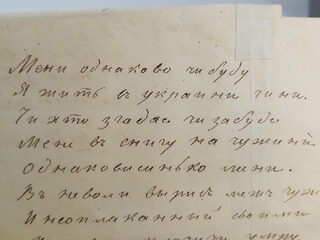 Мени однаково чи буду
Я жить въ украини чи ни.
Чи хто згадає чи забуде
Мене въ снигу на чужини
Однаковисинько мени.
Въ неволи вырисъ межъ чужи
И неоплаканный своими